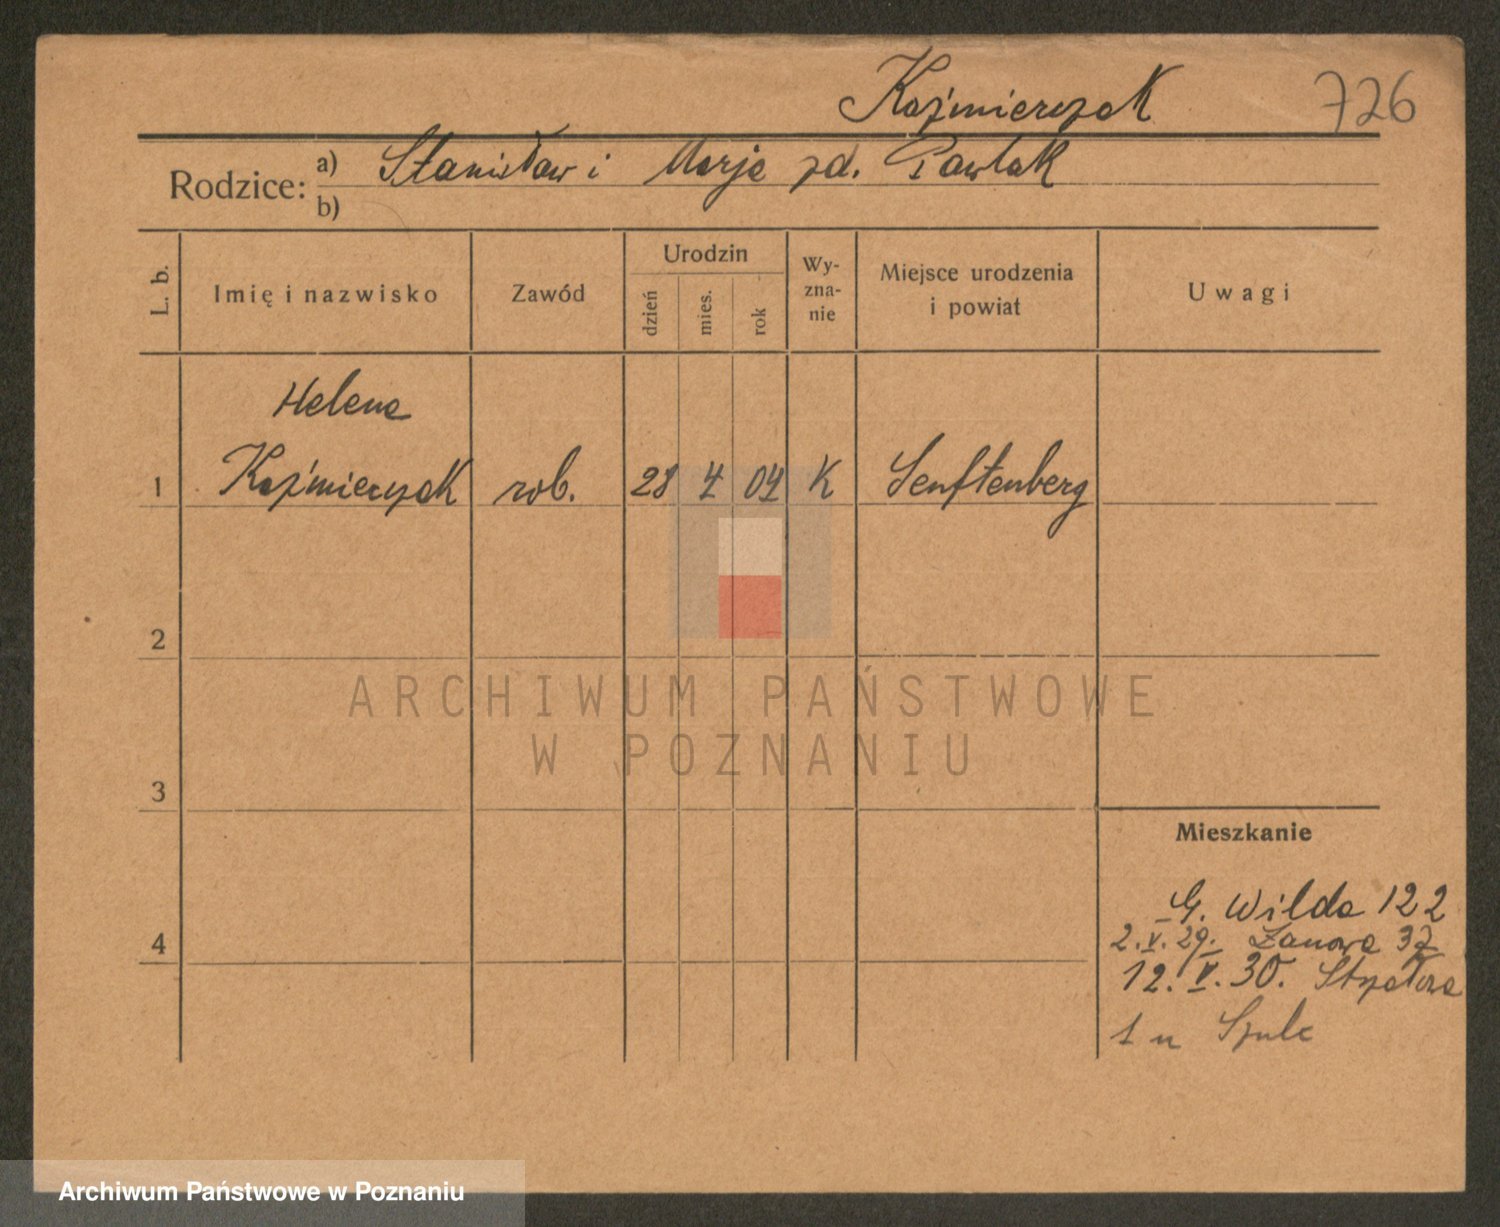 Kaźmierczak 726
Rodzice: a) Stanisław i Marja zd. Pawlak
b)
L. b.
Imię i nazwisko
Zawód
Urodzin
dzień
mies.
rok
Wy-
zna-
nie
Miejsce urodzenia
i powiat
Uwagi
Helena
1 Kaźmierczak rob. 28 4 04 K Senftenberg
2
ARCHIWUM PAŃSTWOWE
W POZNANIU
3
Mieszkanie
G. Wilda 122
4
2.V.29. Łanowa 37
12.V.30. Strzałowa
1 u Szulc
Archiwum Państwowe w Poznaniu